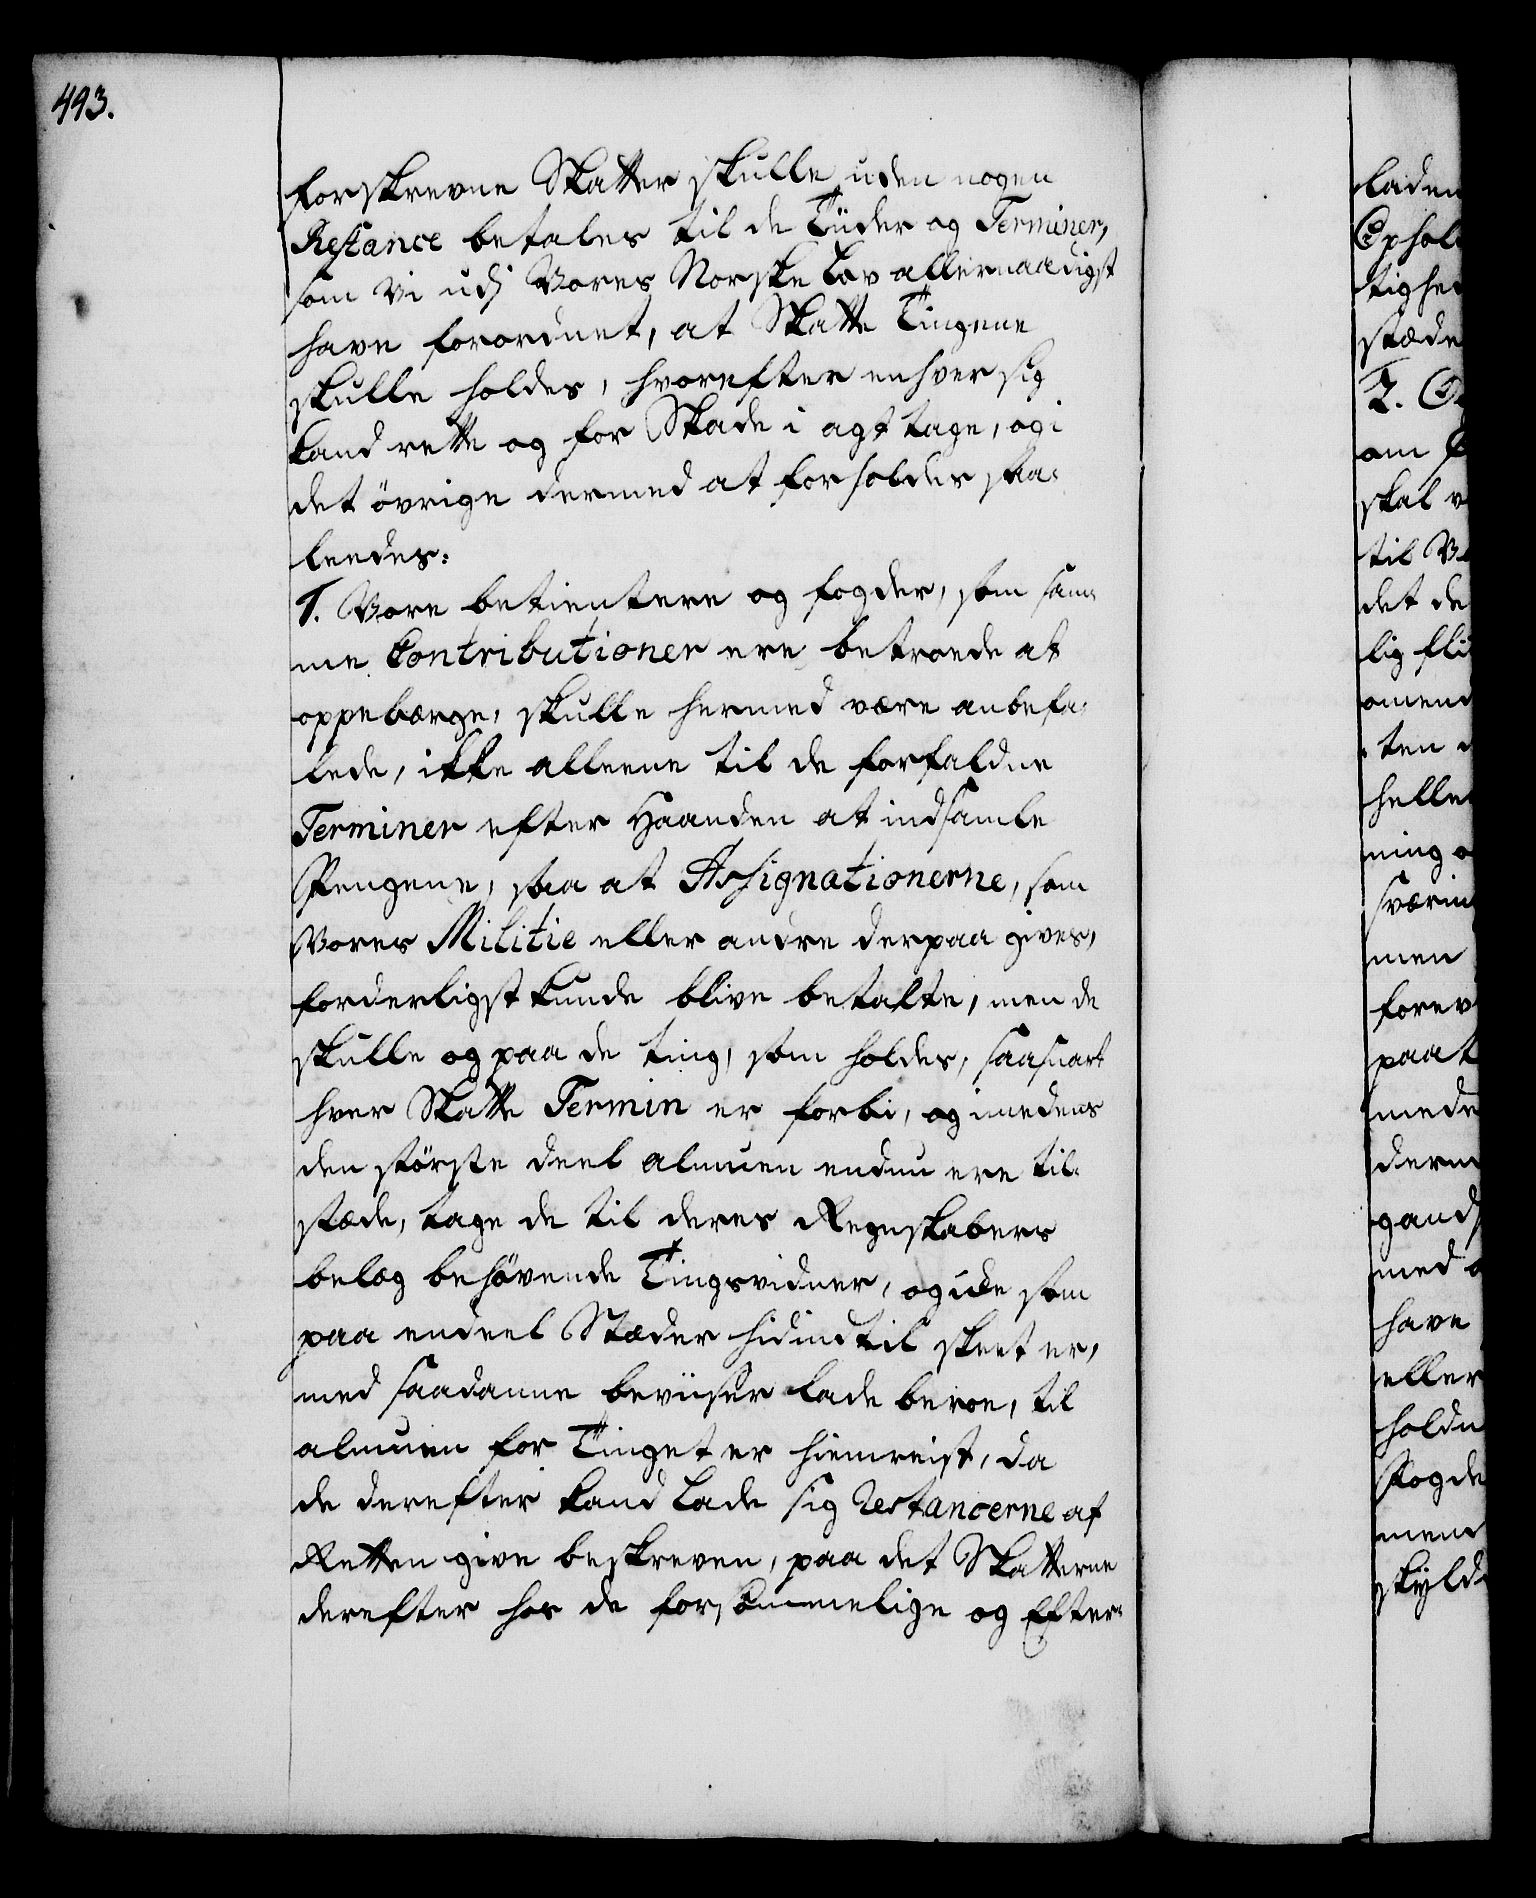 493.
forskrevne Skatter skulle uden nogen
Restance betales til de Tiider og Terminer,
som Vi udj Vores Norske Lov allernaadigst
have forordnet, at Skatte Tingene
skulle holdes, hvorefter enhver sig
kand rette og for Skade i agt tage, og i
det övrige dermed at forholdes saa-
leedes:
1. Vore betientere og fogder, som sam-
me Contributioner ere betroede at
oppebærge, skulle hermed være anbefa-
lede, ikke alleene til de forfaldne
Terminer efter Haanden at indsamle
Pengene, saa at Assignationerne, som
Vores Militie eller andre derpaa gives,
forderligst kunde blive betalte, men de
skulle og paa de ting, som holdes, saasnart
hver Skatte Termin er forbi, og imedens
den störste deel almuen endnu ere til-
stæde, tage de til deres Regnskabers
belæg behövende Tingsvidner, og icke som
paa endeel Stæder hidindtil skeet er,
med saadanne beviiser lade beroe, til
almuen for Tinget er hiemreist, da
de derefter kand lade sig Restancerne af
Retten give beskreven, paa det Skatterne
derefter hos de forsömmelige og Efter-
laden
Ophol
tighe
stæde
2.
om
skal v
til
det de
lig fli
omend
ten
helle
ning
sværin
men
forev
paa
mede
derm
gands
med
have
eller
holdn
Fogde
men
skyld